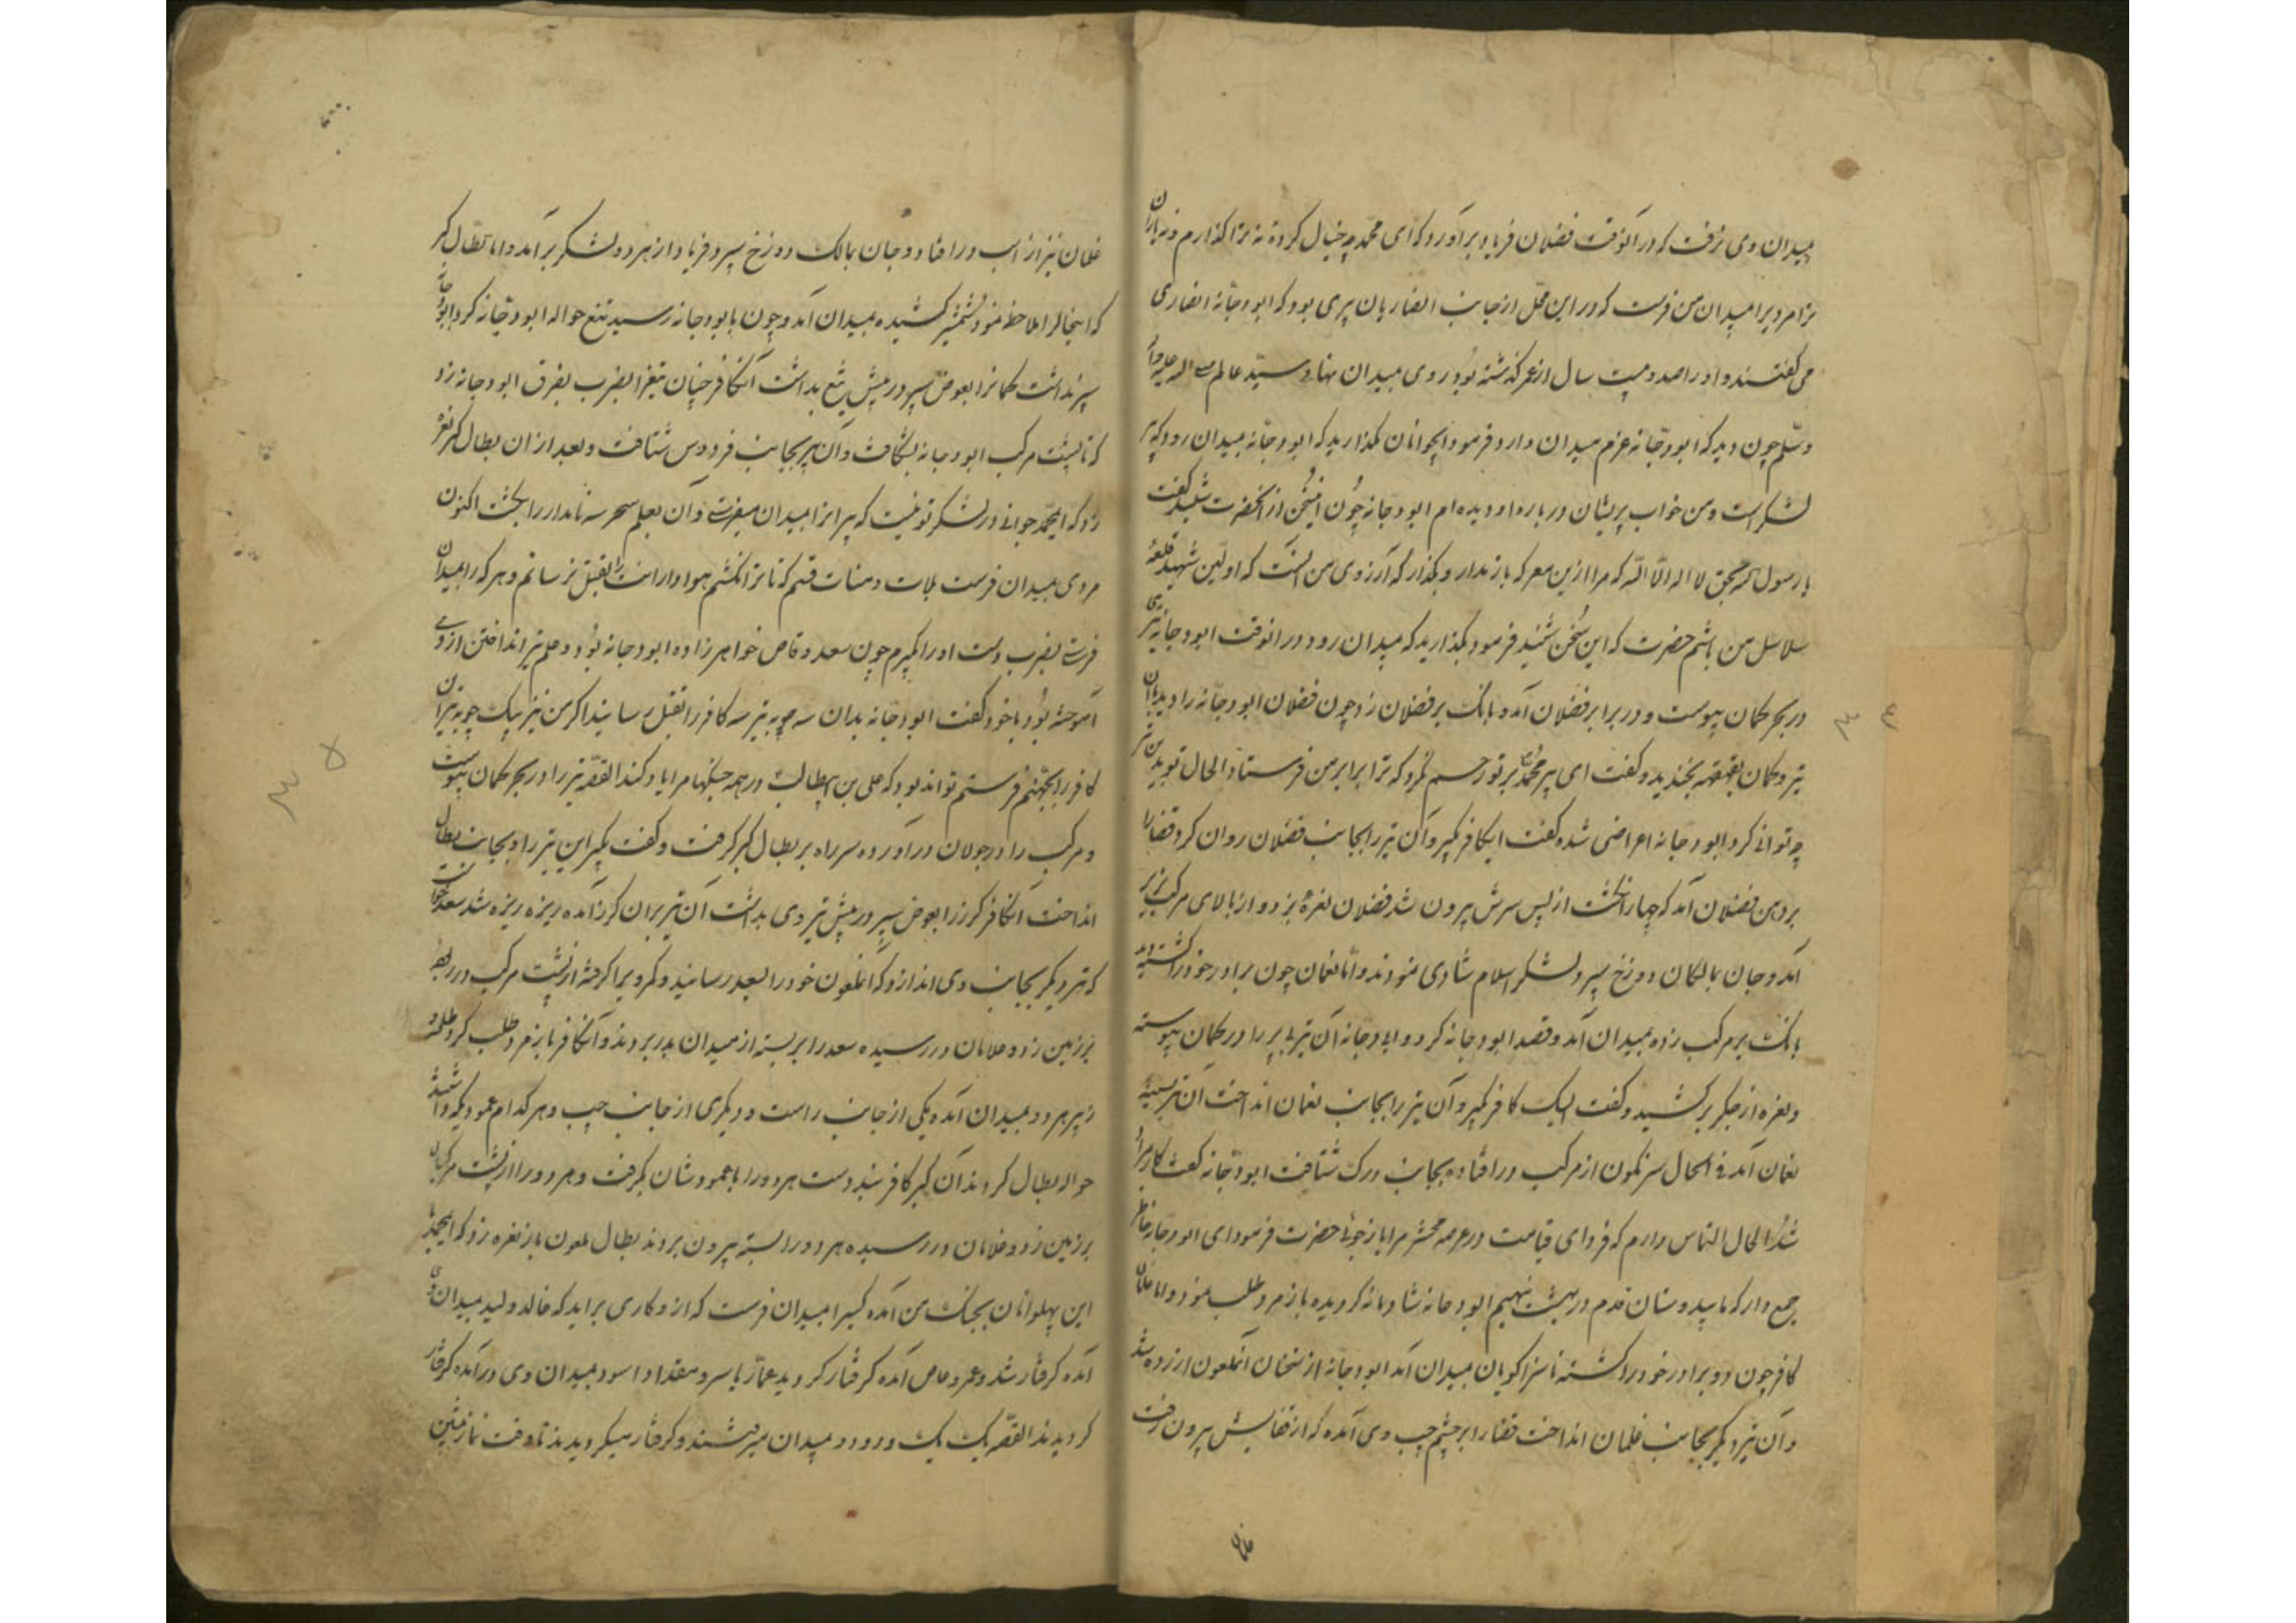 میدان وی نرفت که در آنوقت فضلان فریاد برآورد که ای محمد چه خیال کرده نه ترا گذارم و نه یاران
ترا مرد برا میدان من فرست که در این محل از جانب انصاریان پیری بود که ابودجانه انصاری
می گفتند و او را صد و بیست سال از عمر گذشته بود روی میدان نهاد سید عالم صلی الله علیه وآله
وسلم چون دید که ابودجانه عزم میدان دارد فرمود ایجوانان مگذارید که ابودجانه بمیدان رود که پیر
لشکر است و من خواب پریشان درباره او دیده ام ابودجانه چون این سخن از آنحضرت شنید گفت
یا رسول الله بحق لا اله الا الله که مرا ازین معرکه باز ندار و بگذار که آرزوی من آنست که اولین شهید قلعه
سلاسل من باشم حضرت که این سخن شنید فرمود بگذارید که میدان رود در آنوقت ابودجانه تیری
در بحر کمان پیوست و در برابر فضلان آمد و بانک بر فضلان زد چون فضلان ابودجانه را دید با آن
تیر و کمان بقهقهه بخندید و گفت ای پیر محمد بر تو رحم نکرد که ترا برابر من فرستاد الحال تو بدین تیر
چه توانی کرد ابودجانه اعراضی شده گفت ایکافر بگیر و آن تیر را بجانب فضلان روان کرد قضا را
بر دهن فضلان آمد که چهار انگشت از پس سرش بیرون شد فضلان نعره بزد و از بالای مرکب بزیر
آمد و جان بمالکان دوزخ سپرد لشکر اسلام شادی نمودند و اما نعمان چون برادر خود را کشته دید
بانک بر مرکب زده بمیدان آمد و قصد ابودجانه کرد و ابودجانه آن تیر بی پر را در کمان پیوسته
و نعره از جکر برکشید و گفت الیک کافر بگیر و آن تیر را بجانب نعمان انداخت آن تیر بسینه
نعمان آمد فی الحال سرنکون از مرکب در افتاده بجانب درک شتافت ابودجانه گفت کار مرا
شد الحال التماس دارم که فردای قیامت در عرصه محشر مرا باز جوئی حضرت فرمود ای ابودجانه خاطر
جمع دار که ما بید و شان قدم در بهشت نهیم ابودجانه شادمانه گردیده باز مرد طلب نمود و اما غلمان
کافر چون دو برادر خود را کشته ناسزا گویان میدان آمد ابودجانه از سخنان آنملعون آزرده شد
و آن تیر دیگر بجانب غلمان انداخت قضا را بر چشم چپ وی آمده که از قفایش بیرون رفت
غلمان
غلمان نیز از اسب در افتاد و جان بمالک دوزخ سپرد فریاد از هر دو لشکر برآمد و اما بطال گبر
که اینحال را ملاحظه نمود شمشیر کشیده بمیدان آمد و چون بابودجانه رسید تیغ حواله ابودجانه کرد ابودجانه
سپر نداشت کمانرا بعوض سپر در پیش تیغ بداشت آنکافر چنان تیغ را بضرب بفرق ابودجانه زد
که تا پشت مرکب ابودجانه بشکافت و آن پیر بجانب فردوس شتافت و بعد از آن بطال گبر نعره
زد که ایمحمد جوانی در لشکر تو نیست که پیرانرا میدان میفرستی و آن بعلم سحر سه نامدار را بکشت اکنون
مردی میدان فرست بلات و منات قسم که تا ترا نکشم هوادارانت را بقتل نرسانم و هر که را بمیدان
فرستی بضرب دست او را بگیرم چون سعد وقاص خواهرزاده ابودجانه بود و علم تیر انداختن از وی
آموخته بود با خود گفت ابودجانه بدان سه چوبه تیر سه کافر را بقتل رسانید اگر من نیز بیک چوبه تیر آن
کافر را بجهنم فرستم تواند بود که علی بن ابیطالب در همه جنکها مرا یاد کند القصه تیر را در بحر کمان پیوست
و مرکب را در جولان درآورده سر راه بر بطال گبر گرفت و گفت بگیر این تیر را و بجانب بطال
انداخت آنکافر گرز را بعوض سپر در پیش تیر وی بداشت آن تیر بران گرز آمده ریزه ریزه شد سعد خواست
که تیر دیگر بجانب وی اندازد که آنملعون خود را بسعد رسانید و کمر ویرا گرفته از پشت مرکب در ربوده
بر زمین زد و غلامان در رسیده سعد را بر بسته از میدان بدر بردند و آنکافر باز مرد طلب کرد طلحه و
زبیر هر دو بمیدان آمده یکی از جانب راست و دیگری از جانب چپ و هر کدام عمودیکه داشتند
حواله بطال کردند آن گبر کافر بند دست هر دو را با عمودشان بگرفت و هر دو را از پشت مرکبان
بر زمین زد و غلامان در رسیده هر دو را بسته بیرون بردند بطال ملعون باز نعره زد که ایمحمد با
این پهلوانان بجنک من آمده کسیرا میدان فرست که از و کاری براید که خالد ولید بمیدان وی
آمده گرفتار شد و عمرو عاص آمده گرفتار گردید عمار یاسر و مقداد اسود بمیدان وی درآمده گرفتار
گردیدند القصه یک یک و دو دو میدان میرفتند و گرفتار میگردیدند تا وقت نماز پیشین